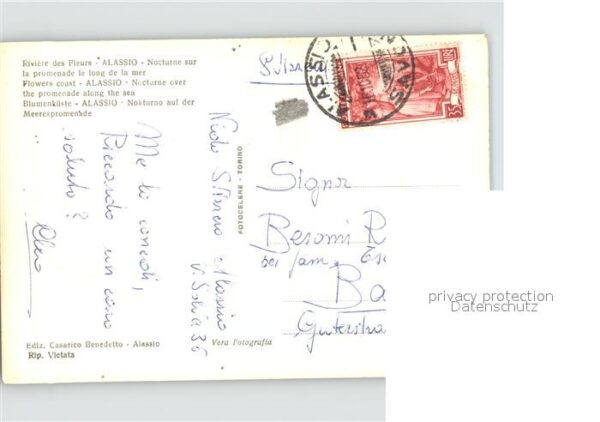 Rivière des Fleurs - ALASSIO - Nocturne sur
la promenade le long de la mer
Flowers coast - ALASSIO - Nocturne over
the promenade along the sea
Blumenküste - ALASSIO - Nokturno auf der
Meerespromenade
Me lo concedi,
Riccardo un caro
saluto?
Alassio
FOTOCELERE - TORINO
ALASSIO
SAVONA
35
Signor
Beromi R
bei Fam.
Ba
Güterstra
Vera Fotografia
Ediz. Casarico Benedetto - Alassio
Rip. Vietata
privacy protection
Datenschutz